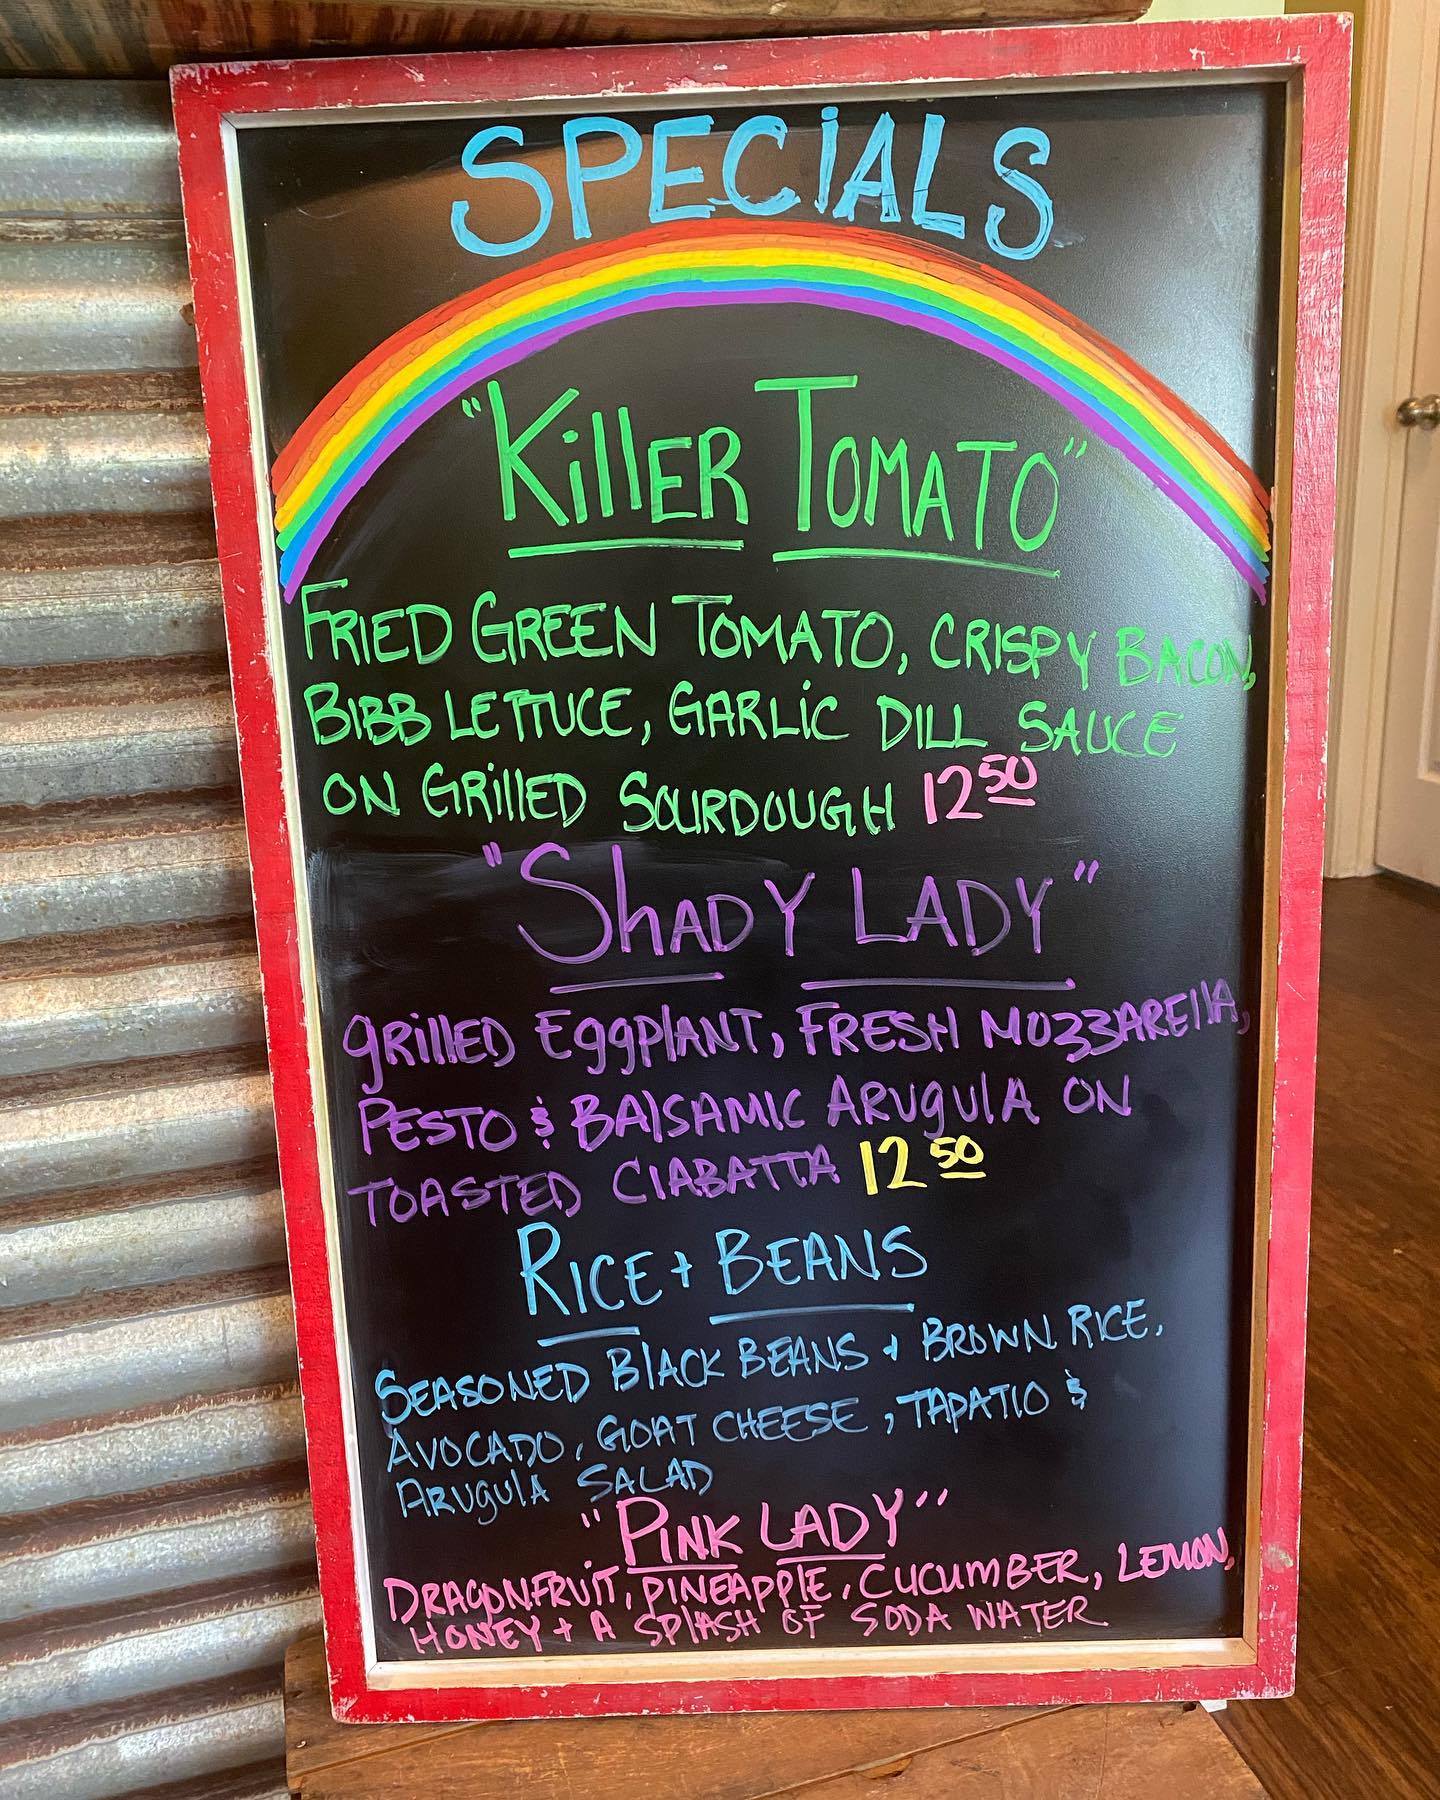 SPECiALS
"KillER TOMATO"
FRIED GREEN TOMATO, CRISPY BACON,
BIBB LETTUCE, GARLiC DILL SAUCE
ON GRillED SOURDOUGH 12 50
"ShADY LADY"
gRillED EggplANT, FRESH MOZZAREllA,
PESTO & BAlSAMIC ARUgUlA ON
TOASTED CIABATTA 12 50
RICE + BEANS
SEASONED BlACK BEANS + BROWN RICE,
AVOCADO, GOAT CHEESE, TAPATIO &
ARUgUlA SALAD
"PINK LADY"
DRAGONFRUiT, PINEAPPlE, CUCUMBER, LEMON,
HONEY + A SPlASH OF SODA WATER